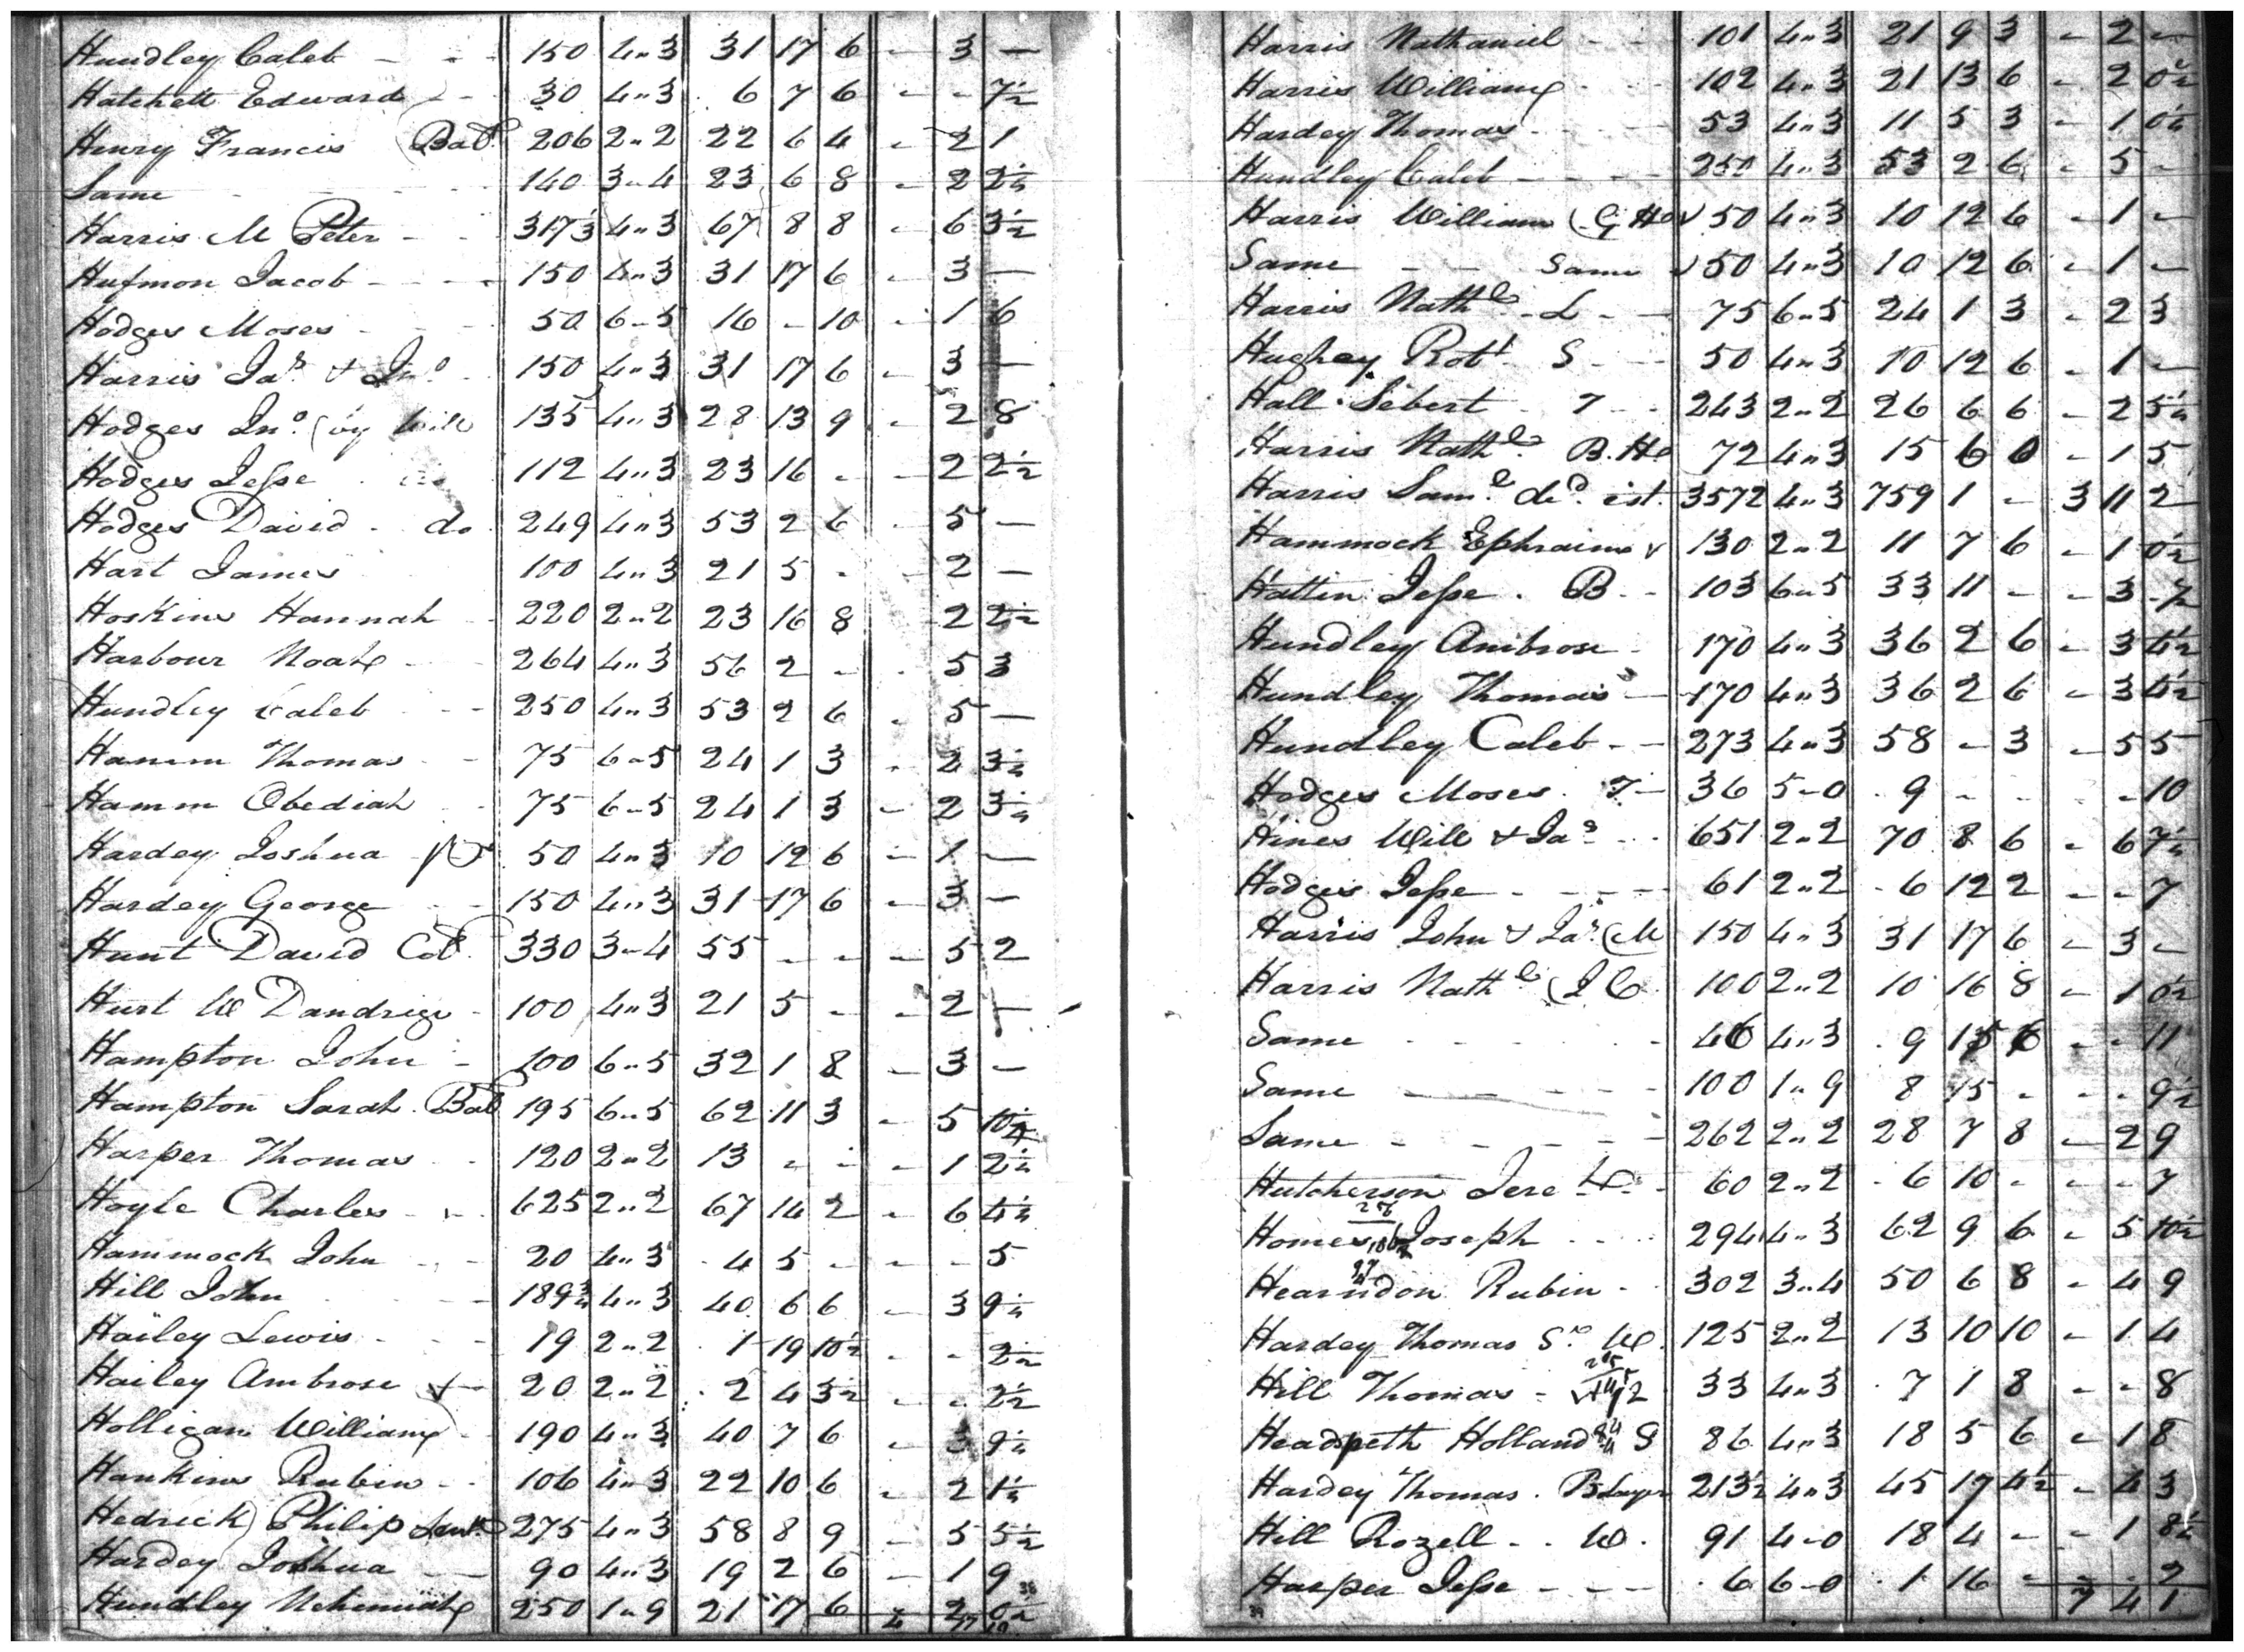 Hundley Caleb - - - 150 4"3 31 17 6 - 3 -
Hatchett Edward - - 30 4"3 6 7 6 - - 7½
Henry Francis (Bat. 206 2"2 22 6 4 - 2 1
Same - - - 140 3"4 23 6 8 - 2 2¼
Harris M Peter - - 317⅓ 4"3 67 8 8 - 6 3½
Hufmon Jacob - - - 150 4"3 31 17 6 - 3 -
Hodges Moses - - - 50 6"5 16 - 10 - 1 6
Harris Jas. & Jno. - 150 4"3 31 17 6 - 3 -
Hodges Jno. (by Will 135 4"3 28 13 9 - 2 8
Hodges Jesse 112 4"3 23 16 - - 2 2½
Hodges David - do 249 4"3 53 2 6 - 5 -
Hart James 100 4"3 21 5 - - 2 -
Hoskins Hannah - 220 2"2 23 16 8 - 2 2½
Harbour Noah - - 264 4"3 56 2 - - 5 3
Hundley Caleb - - 250 4"3 53 2 6 - 5 -
Hamm Thomas - - 75 6"5 24 1 3 - 2 3¼
Hamm Obediah - 75 6"5 24 1 3 - 2 3¼
Hardey Joshua 50 4"3 10 12 6 - 1 -
Hardey George - - 150 4"3 31 17 6 - 3 -
Hunt David Col. 330 3"4 55 - - - 5 2
Hurt W Dandrige - 100 4"3 21 5 - - 2 -
Hampton John - 100 6"5 32 1 8 - 3 -
Hampton Sarah. Bat 195 6"5 62 11 3 - 5 10¼
Harper Thomas - - 120 2"2 13 - - - 1 2¼
Hoyle Charles - - 625 2"2 67 14 2 - 6 4¼
Hammock John - - 20 4"3 4 5 - - - 5
Hill John - - 189¾ 4"3 40 6 6 - 3 9¼
Hailey Lewis - - - 19 2"2 1 19 10½ - - 2½
Hailey Ambrose - 20 2"2 2 4 3½ - - 2½
Holligan William - 190 4"3 40 7 6 - 3 9¼
Hankins Rubin - - 106 4"3 22 10 6 - 2 1¼
Hedrick Philip 275 4"3 58 8 9 - 5 5½
Hardey Joshua - 90 4"3 19 2 6 - 1 9
Hundley Nehemiah 250 1"9 21 17 6 2 0½
Harris Nathaniel - - 101 4"3 21 9 3 - 2 -
Harris William - - 102 4"3 21 13 6 - 2 0½
Hardey Thomas - - - 53 4"3 11 5 3 - 1 0¼
Hundley Caleb - - - - 250 4"3 53 2 6 - 5 -
Harris William (G Ho 50 4"3 10 12 6 - 1 -
Same - - Same 50 4"3 10 12 6 - 1 -
Harris Nathl. - L - - 75 6"5 24 1 3 - 2 3
Hughey Robt. S - - 50 4"3 10 12 6 - 1 -
Hall Sebert - T - - 243 2"2 26 6 6 - 2 5¼
Harris Nathl. B. Ho 72 4"3 15 6 0 - 1 5
Harris Saml. decd. est. 3572 4"3 759 1 - 3 11 2
Hammock Ephraim 130 2"2 11 7 6 - 1 0½
Hattin Jesse . B - - 103 6"5 33 11 - - 3 -½
Hundley Ambrose - 170 4"3 36 2 6 - 3 4½
Hundley Thomas - 170 4"3 36 2 6 - 3 4½
Hundley Caleb - - 273 4"3 58 - 3 - 5 5
Hodges Moses . T - 36 5-0 9 - - - - 10
Hines Will & Jas. - - 651 2"2 70 8 6 - 6 7¼
Hodges Jesse - - - - 61 2"2 6 12 2 - - 7
Harris John & Jas. (M 150 4"3 31 17 6 - 3 -
Harris Nathl. (J C. 100 2"2 10 16 8 - 1 0½
Same - - - - - 46 4"3 9 15 6 - - 11
Same - - - - - 100 1"9 8 15 - - - 9½
Same - - - - - 262 2"2 28 7 8 - 2 9
Hutcherson Jere - 60 2"2 6 10 - - - 7
Homes Joseph - - - 294 4"3 62 9 6 - 5 10½
Hearndon Rubin - 302 3"4 50 6 8 - 4 9
Hardey Thomas Sr. W. 125 2"2 13 10 10 - 1 4
Hill Thomas - 33 4"3 7 1 8 - - 8
Headspeth Holland S 86 4"3 18 5 6 - 1 8
Hardey Thomas . 213½ 4"3 45 17 4½ - 4 3
Hill Rozell - . W . 91 4-0 18 4 - - 1 8¼
Harper Jesse - - - 6 6-0 1 16 - - - 2
7 4 1